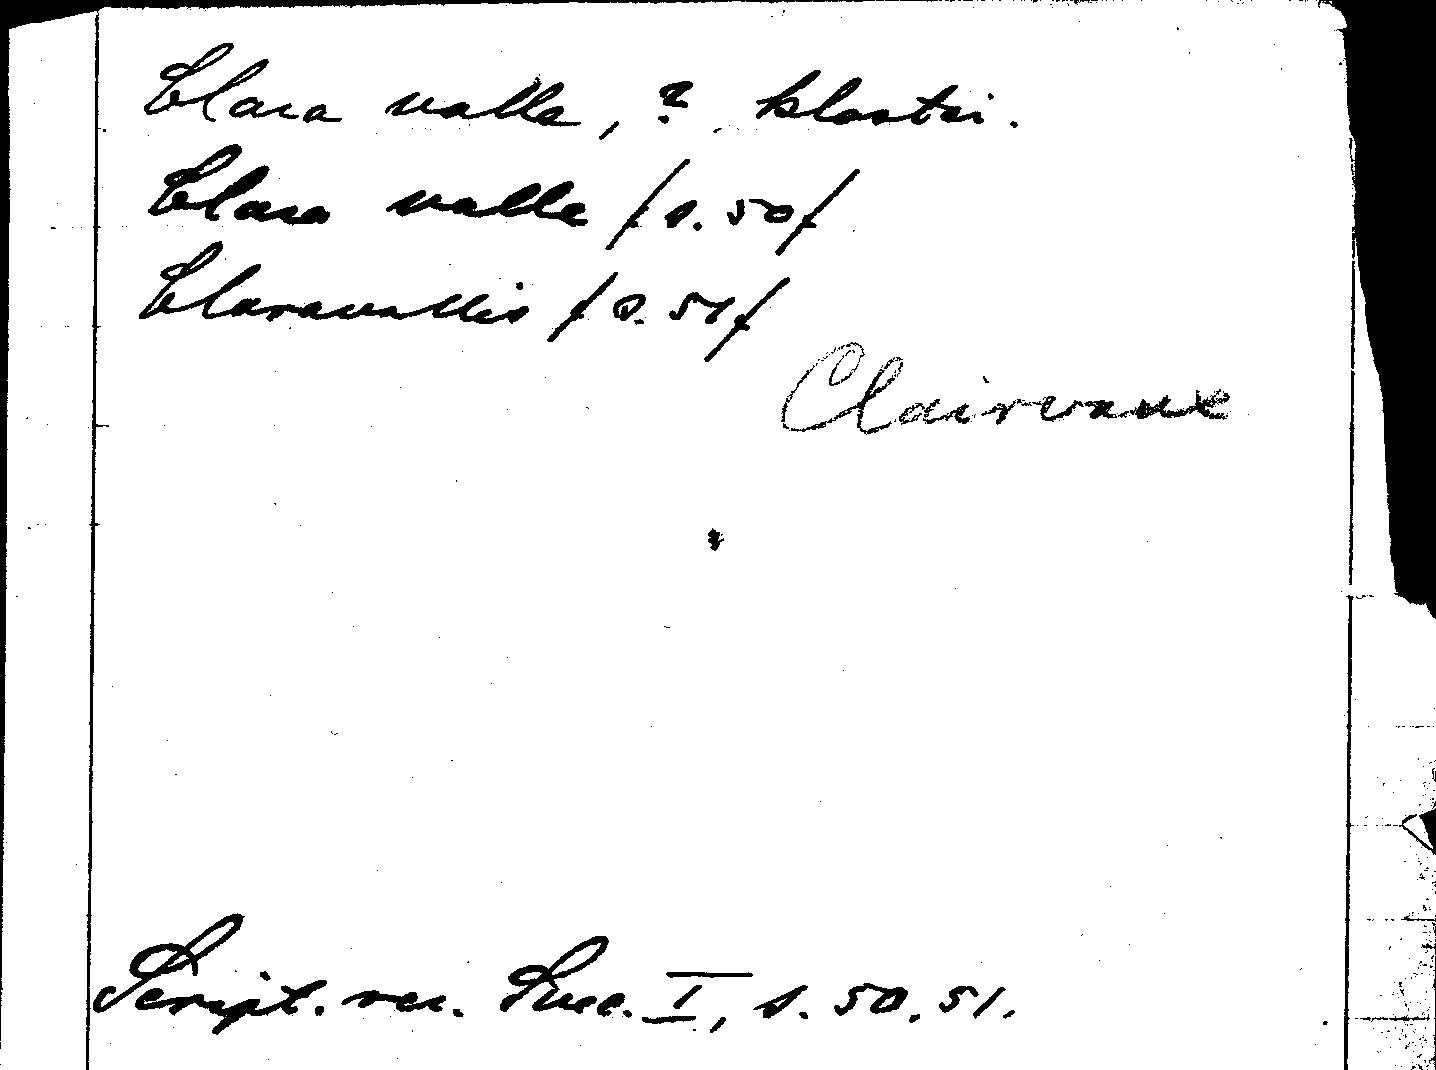 Clara valle, ? kloster.
Clara valle /s. 50/
Claravallis /s. 51/
Clairvaux
Script. rer. Suec. I, s. 50, 51.